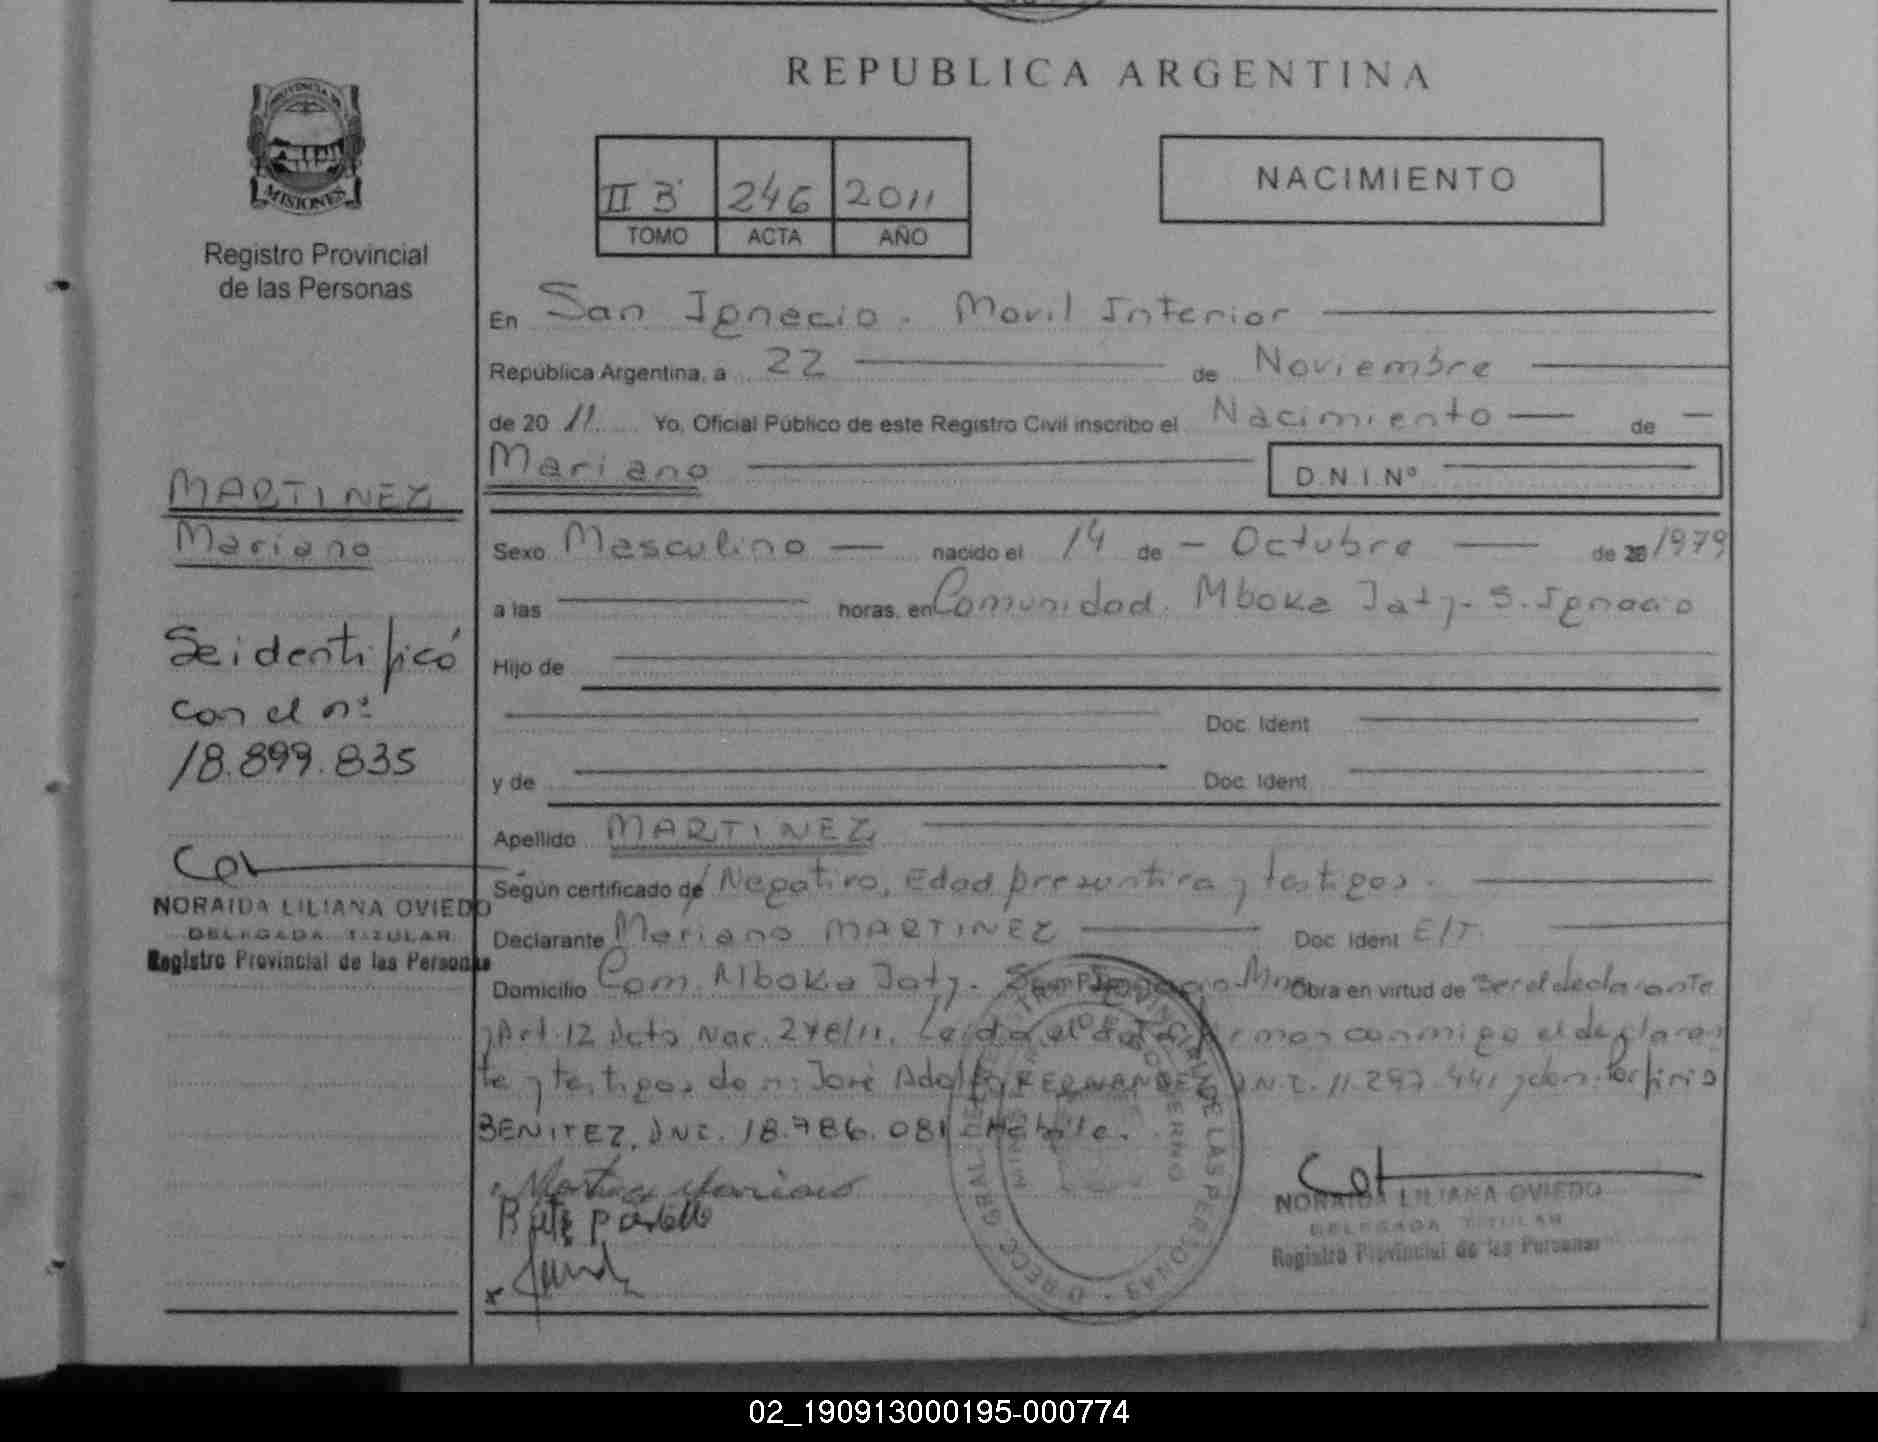 REPUBLICA ARGENTINA
PROVINCIA DE
MISIONES
Registro Provincial
de las Personas
II B 246 2011
TOMO ACTA AÑO
NACIMIENTO
En San Ignacio. Movil Interior
República Argentina, a 22 de Noviembre
de 20 11 Yo, Oficial Público de este Registro Civil inscribo el Nacimiento de
Mariano D.N.I.Nº
MARTINEZ
Mariano
Sexo Masculino nacido el 14 de Octubre de 1979
a las horas, en Comunidad Mboka Jaty. S. Ignacio
Hijo de
Doc. Ident
y de Doc. Ident
Apellido MARTINEZ
Según certificado de Negativo, Edad presuntiva y testigos.
Declarante Mariano MARTINEZ Doc. Ident E/T.
Domicilio Com. Mboka Jaty. San Ignacio Mnes Obra en virtud de ser el declarante
y Art. 12 Dcto Nac. 278/11. Leida el acta firman conmigo el declaran
te y testigos don: José Adolfo FERNANDEZ D.N.I. 11.297.441 y don: Porfirio
BENITEZ, DNI. 18.786.081
Se identificó
con el nº
18.899.835
NORAIDA LILIANA OVIEDO
DELEGADA TITULAR
Registro Provincial de las Personas
NORAIDA LILIANA OVIEDO
DELEGADA TITULAR
Registro Provincial de las Personas
02_190913000195-000774